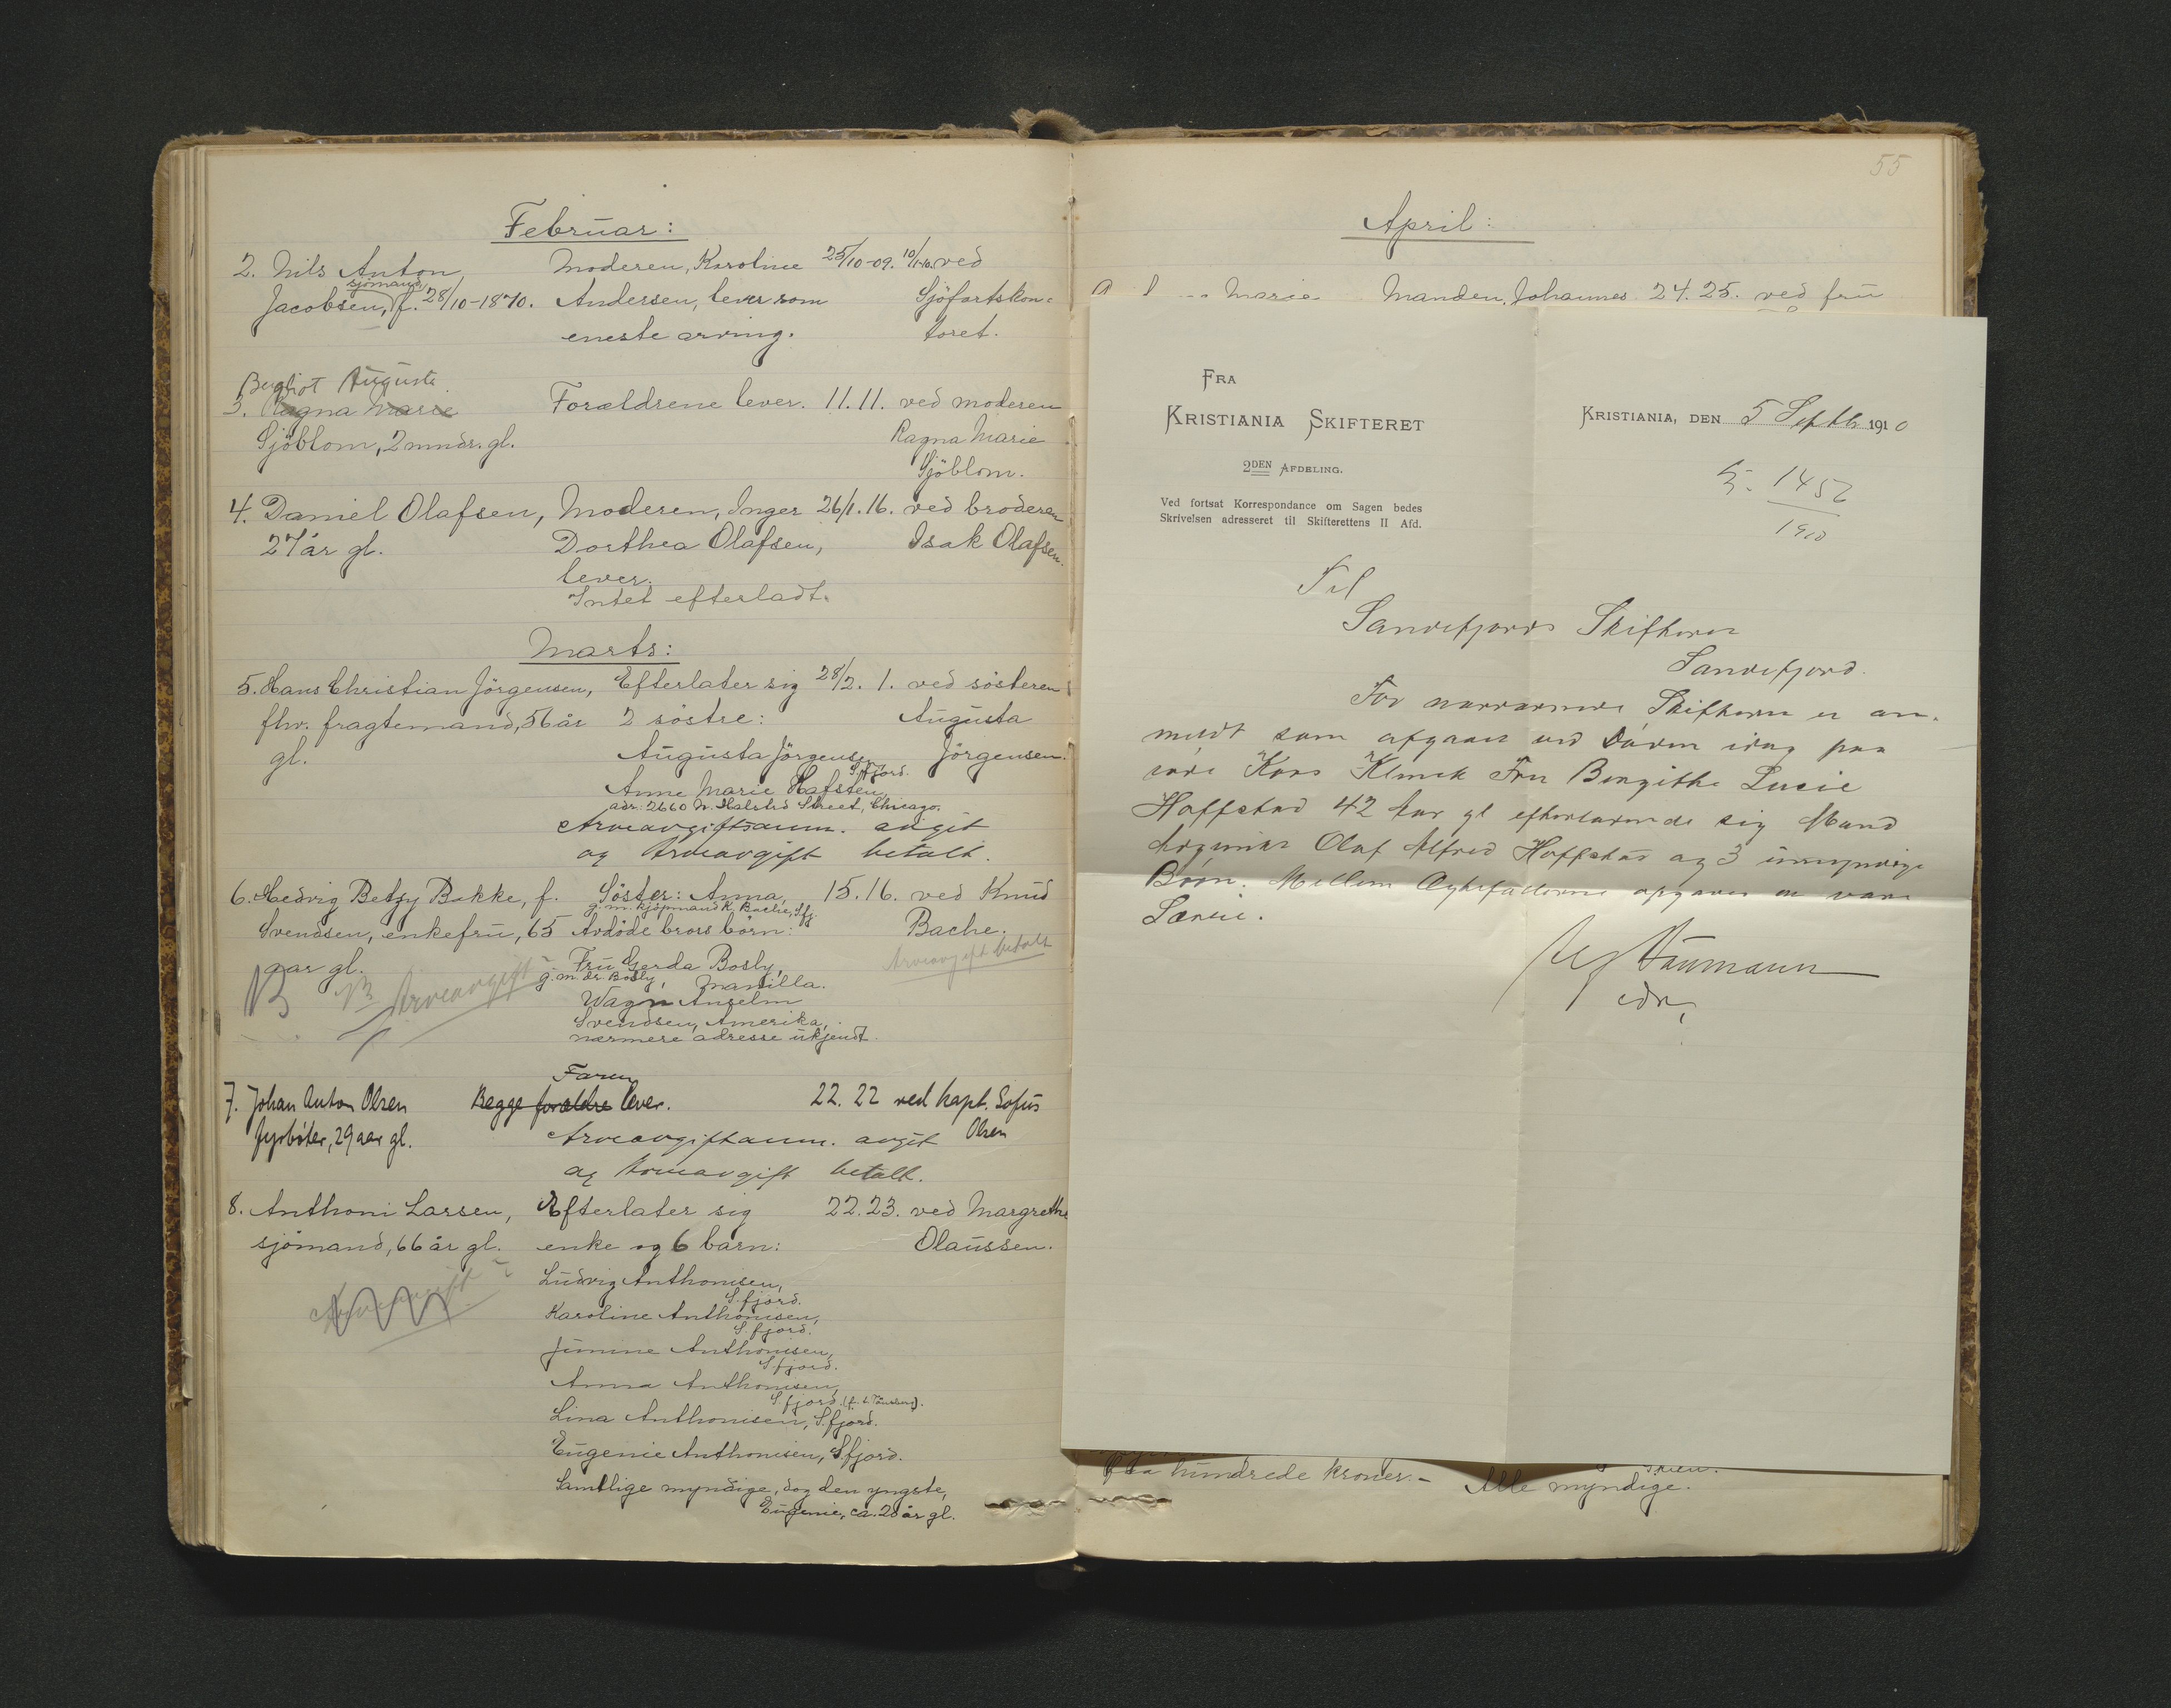 Februar:
2. Nils Anton, Moderen, Karoline 25/10-09. 10/1-10. ved
sjömand,
Jacobsen, f. 28/10-1870. Andersen, lever som Sjöfartskon-
eneste arving. toret.
Bergliot Augusta
3. Ragna Marie Forældrene lever. 11. 11. ved moderen
Sjöblom, 2 mndr. gl. Ragna Marie
Sjöblom.
4. Daniel Olafsen, Moderen, Inger 26/1. 16. ved broderen
27 år gl. Dorthea Olafsen, Isak Olafsen.
lever.
Intet efterladt.
Marts:
5. Hans Christian Jörgensen, Efterlater sig 28/2. 1. ved søsteren
fhv. fragtemand, 56 år 2 söstre: Augusta
gl. Augusta Jörgensen, Jörgensen.
S.fjord.
Anne Marie Hafsten,
adr: 2660 N. Halsted Street, Chicago.
Arveavgiftsanm. avgit
og Arveavgift betalt.
6. Hedvig Betzy Bakke, f. Söster: Anna, 15. 16. ved Knud
g. m. kjöpmand K. Bache, Sfj.
Svendsen, enkefru, 65 Avdöde brors börn: Bache.
aar gl. Fru Gerda Bosly, Arveavgift betalt
g. m. dr. Bosly, Manilla.
Arveavgift
Wagn Anselm
Svendsen, Amerika,
nærmere adresse ukjendt.
Faren
7. Johan Anton Olsen Begge forældre lever. 22. 22 ved kapt. Sofus
Fyrböter, 29 aar gl. Arveavgiftsanm. avgit Olsen
og Arveavgift betalt.
8. Anthoni Larsen, Efterlater sig 22. 23. ved Margrethe
sjömand, 66 år gl. enke og 6 barn: Olaussen.
Ludvig Anthonisen,
S.fjord.
Arveavgift
Karoline Anthonisen,
S.fjord.
Jimine Anthonisen,
S.fjord.
Anna Anthonisen,
S.fjord
Lina Anthonisen, S.fjord.
Eugenie Anthonisen, S.fjord.
Samtlige myndige, dog den yngste,
Eugenie, ca. 20 år gl.
55
April:
Marie Manden, Johannes 24. 25. ved fru
FRA
KRISTIANIA SKIFTERET
2DEN AFDELING.
Ved fortsat Korrespondance om Sagen bedes
Skrivelsen adresseret til Skifterettens II Afd.
KRISTIANIA, DEN 5 Septbr 1910
1452
1910
Til
Sandefjords Skifteret
Sandefjord.
For nærværende Skifteret er an-
meldt som afgaaet ved Døden idag paa
Klinik Fru Bergithe Lucie
Hoffstad 42 Aar gl efterladende sig Mand
Olaf Alfred Hoffstad og 3 umyndige
Børn. Mellem Ægtefællerne opgaves at være
Særeie.
hundrede kroner.- Alle myndige.